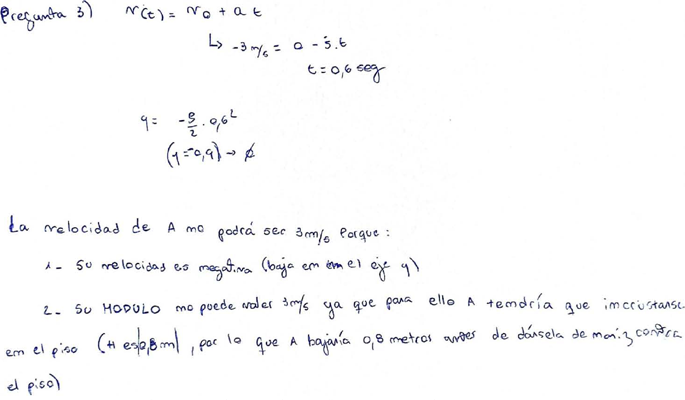 Pregunta 3) v(t) = v0 + a t
↳ -3 m/s = 0 - 5.t
t = 0,6 seg
y = -5/2 . 0,6²
(y = -0,9) →
La velocidad de A no podrá ser 3 m/s Porque:
1- Su velocidas es negativa (baja en el eje y)
2- Su MODULO no puede valer 3 m/s ya que para ello A tendría que incrustarse
en el piso (H es 0,8 m , por lo que A bajaría 0,8 metros antes de dársela de nariz contra
el piso)